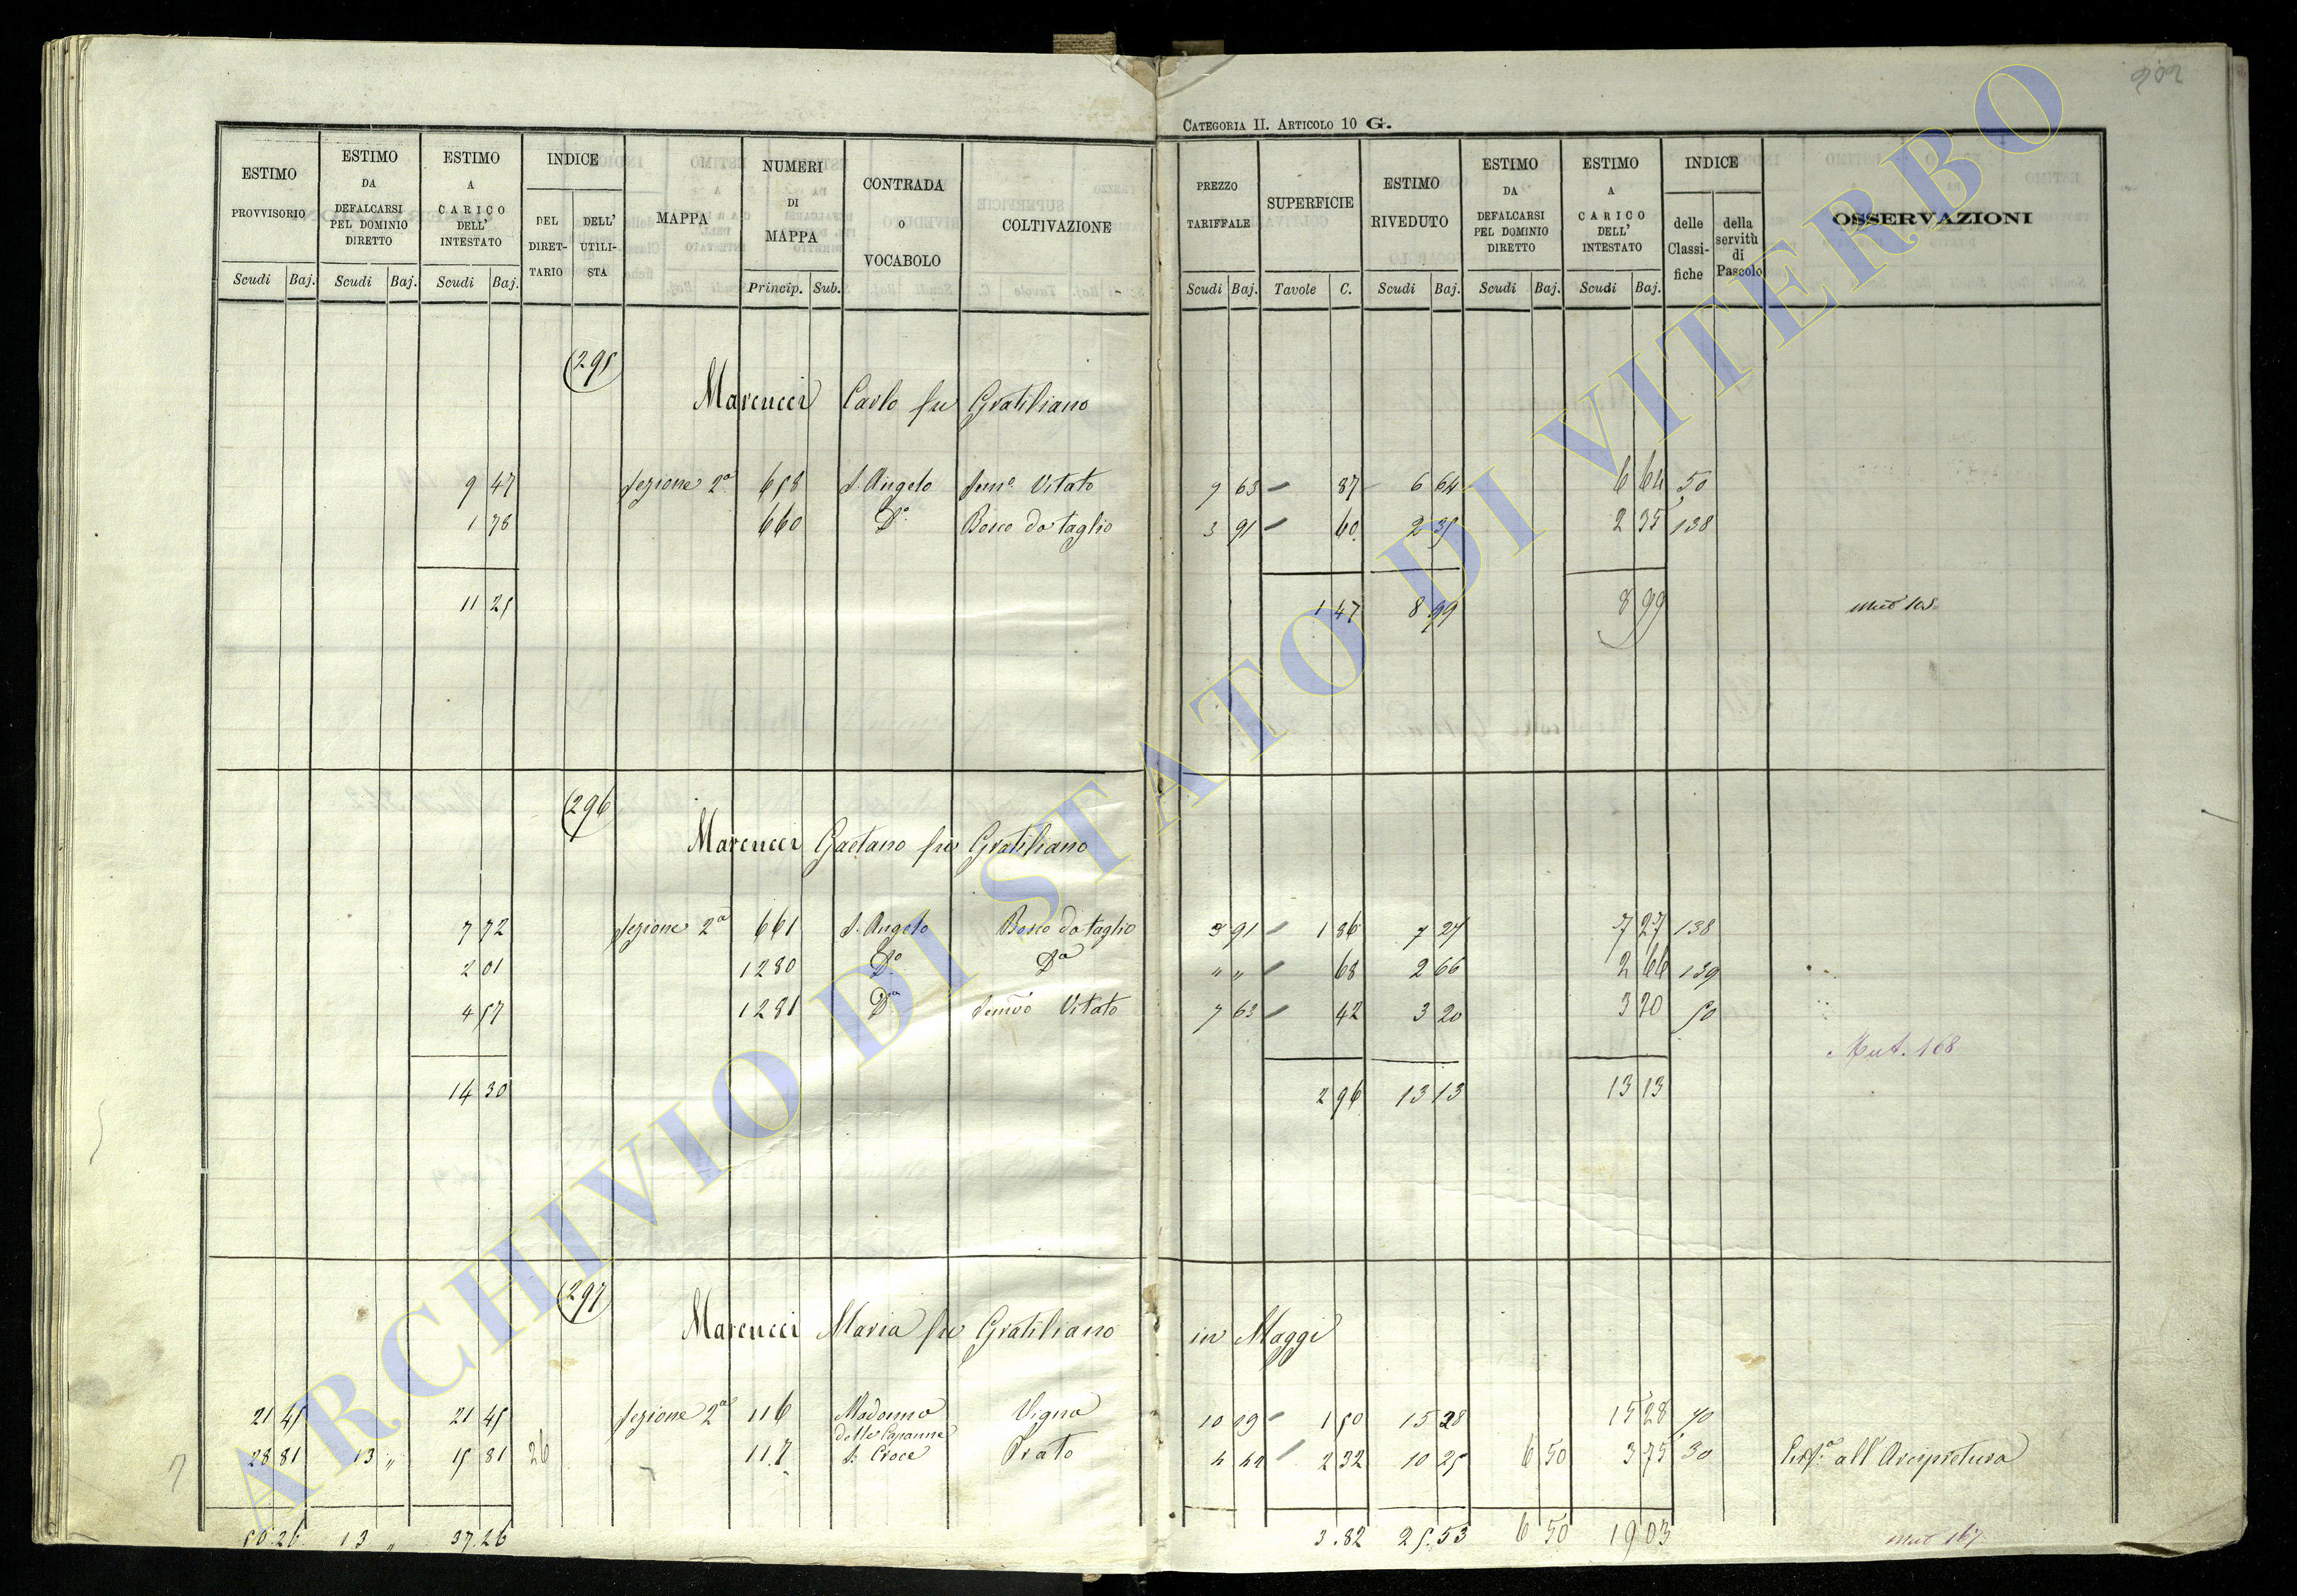 902
CATEGORIA II. ARTICOLO 10 G.
ESTIMO PROVVISORIO Scudi Baj.
ESTIMO DA DEFALCARSI PEL DOMINIO DIRETTO Scudi Baj.
ESTIMO A CARICO DELL' INTESTATO Scudi Baj.
INDICE DEL DIRET-TARIO DELL' UTILI-STA
MAPPA
NUMERI DI MAPPA Princip. Sub.
CONTRADA o VOCABOLO
COLTIVAZIONE
PREZZO TARIFFALE Scudi Baj.
SUPERFICIE Tavole C.
ESTIMO RIVEDUTO Scudi Baj.
ESTIMO DA DEFALCARSI PEL DOMINIO DIRETTO Scudi Baj.
ESTIMO A CARICO DELL' INTESTATO Scudi Baj.
INDICE delle Classi-fiche della servitù di Pascolo
OSSERVAZIONI
295
Marcucci Carlo fu Gratiliano
9 47 Sezione 2a 658 S. Angelo Sem.o Vitato 7 63 87 6 64 6 64 50
1 78 660 D.o Bosco da taglio 3 91 60 2 35 2 35 138
11 25 1 47 8 99 8 99
296
Marcucci Gaetano fu Gratiliano
7 72 Sezione 2a 661 S. Angelo Bosco da taglio 3 91 1 86 7 27 7 27 138
2 01 1280 D.o D.o " " 68 2 66 2 66 139
4 57 1281 D.o Semvo Vitato 7 63 42 3 20 3 20 50
Mut. 168
14 30 2 96 13 13 13 13
297
Marcucci Maria fu Gratiliano in Maggi
21 45 21 45 Sezione 2a 116 Madonna delle Capanne Vigna 10 19 1 50 15 28 15 28 40
28 81 13 " 15 81 26 117 S. Croce Prato 4 42 2 32 10 25 6 50 3 75 30 all'Arcipretura
50.26 13 " 37.26 3.82 25.53 6 50 19 03 Mut 167
ARCHIVIO DI STATO DI VITERBO